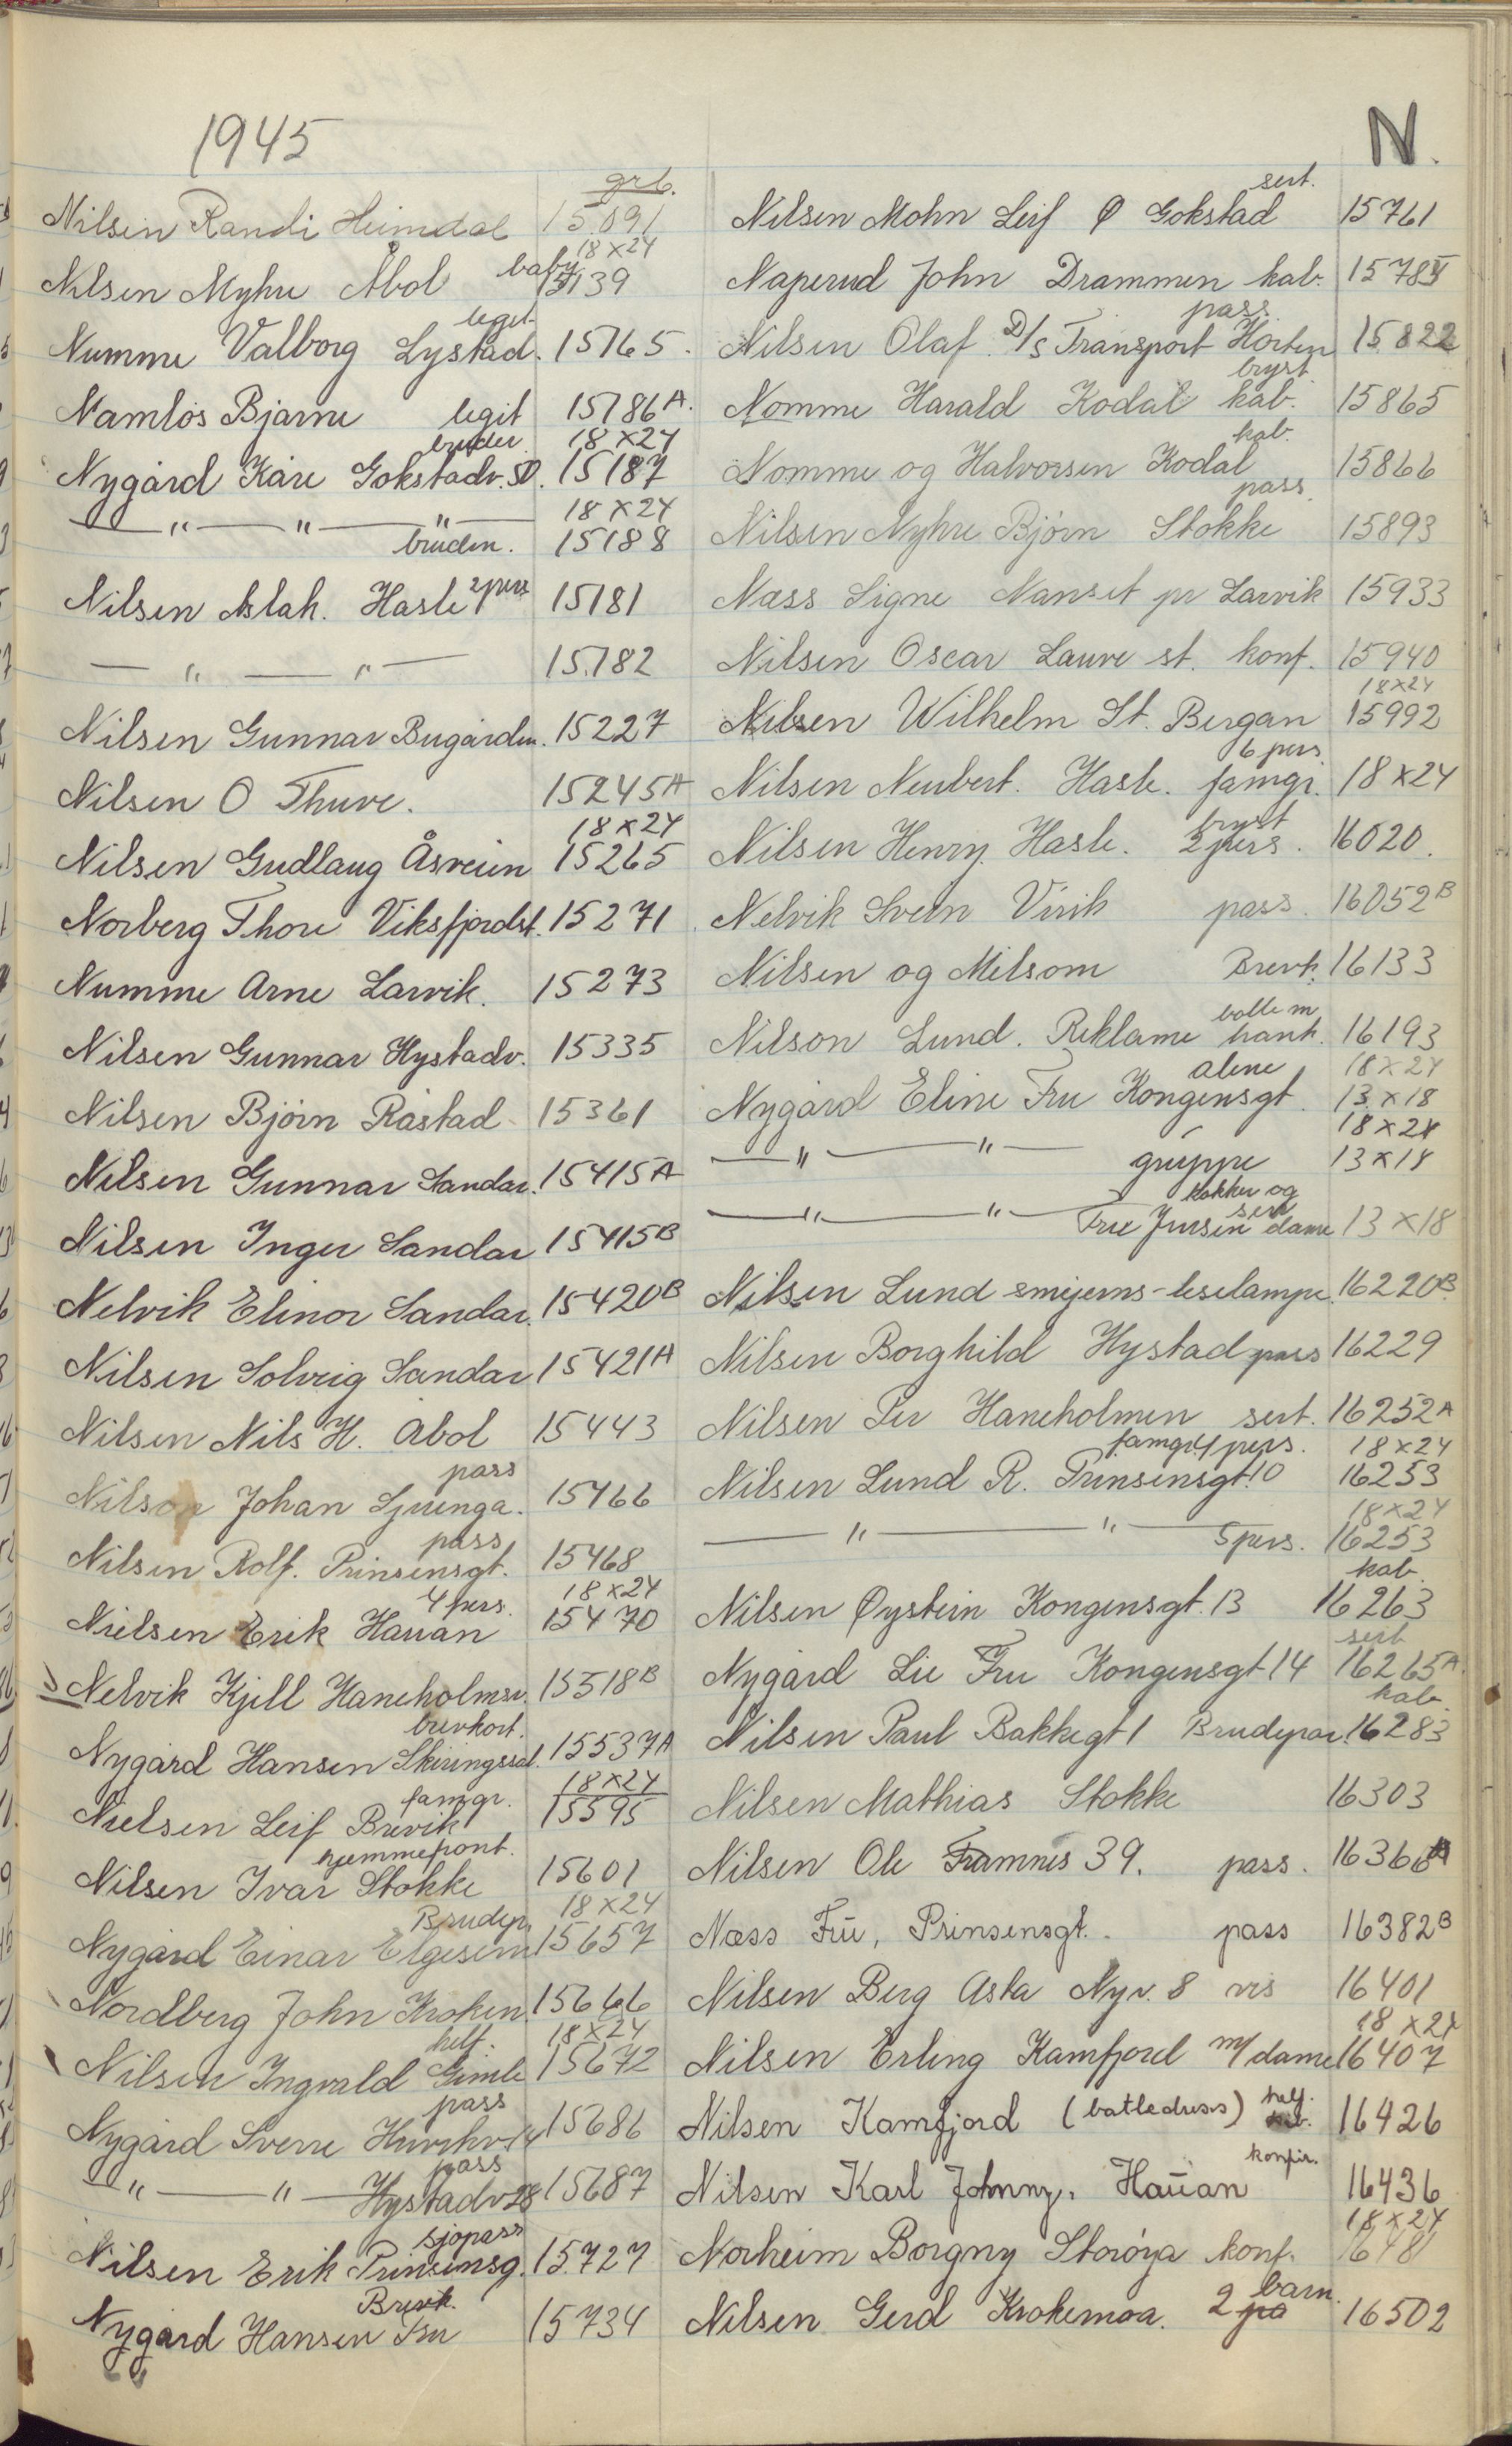 1945
N.
grb.
Nilsen Randi Heimdal 15.091
18×24
Nilsen Myhre Åbol baby 15139
legit.
Numme Valborg Lystad. 15165.
Namløs Bjarne legit 15186A.
bruder 18×24
Nygård Kåre Gokstadv. 50. 15187
18×24
— " — " — " —
bruden. 15188
Nilsen Aslak. Hasle 2 pers 15181
— " — " — 15182
Nilsen Gunnar Bugården. 15227
Nilsen O Thuve. 15245A
18×24
Nilsen Gudlaug Åsveien 15265
Norberg Thore Viksfjordst. 15271
Numme Arne Larvik. 15273
Nilsen Gunnar Hystadv. 15335
Nilsen Bjørn Råstad 15361
Nilsen Gunnar Sandar. 15415A
Nilsen Inger Sandar 15415B
Nelvik Elinor Sandar. 15420B
Nilsen Solveig Sandar 15421A
Nilsen Nils H. Åbol 15443
pass
Nilson Johan Ljuenga. 15466
pass
Nilsen Rolf. Prinsensgt. 15468
4 pers. 18×24
Nielsen Erik Hauan 15470
Nelvik Kjell Haneholmsv. 15518B
brevkort.
Nygård Hansen Skiringssal. 15537A
famgr. 18×24
Nielsen Leif Brevik 15595
hjemmefront.
Nilsen Ivar Stokke 15601
Brudep. 18×24
Nygård Einar Elgesem 15657
Nordberg John Kroken. 15666
helf. 18×24
Nilsen Ingvald Gimle 15672
pass
Nygård Sverre 15686
pass
— " — " — Hystadv 28 15687
sjøpass
Nilsen Erik Prinsensg. 15727
Brevk.
Nygård Hansen Fru 15734
sert.
Nilsen Mohn Leif Ø Gokstad 15761
Naperud John Drammen kab. 15784
pass.
Nilsen Olaf. D/s Transport Horten 15822
bryst
Nomme Harald Kodal kab. 15865
kab.
Nomme og Halvorsen Kodal 15866
pass.
Nilsen Myhre Bjørn Stokke 15893
Næss Signe Nanset pr Larvik 15933
Nilsen Oscar Lauve st. konf. 15940
18×24
Nilsen Wilhelm St. Bergan 15992
6 pers
Nilsen Neubert. Hasle. famgr. 18×24
bryst
Nilsen Henry. Hasle. 2 pers. 16020.
Nelvik Svein Virik pass. 16052B
Nilsen og Milsom Brevk. 16133
bolle m
Nilson Lund. Reklame hank. 16193
alene 18×24
Nygård Eline Fru Kongensgt. 13×18
18×24
— " — " — gruppe 13×18
kokken og
— " — " — Fru Jensen dame 13×18
Nilsen Lund smijerns-leselampe. 16220B.
Nilsen Borghild Hystad pass 16229
Nilsen Per Haneholmen sert. 16252A
famgr. 4 pers. 18×24
Nilsen Lund R. Prinsensgt. 10 16253
18×24
— " — " — 5 pers. 16253
kab.
Nilsen Øystein Kongensgt. 13 16263
sert
Nygård Lie Fru Kongensgt 14 16265A.
kab.
Nilsen Paul Bakkegt 1 Brudepar. 16283
Nilsen Mathias Stokke 16303
Nilsen Ole Framnes 39. pass. 16366A
Næss Frū, Prinsensgt. pass 16382B
Nilsen Berg Asta Nyv. 8 vis 16401
18×24
Nilsen Erling Kamfjord m/dame 16407
helf.
Nilsen Kamfjord (batledress) 16426
konfir.
Nilsen Karl Johnny. Haūan 16436
18×24
Norheim Borgny Storøya konf. 16481
barn.
Nilsen Gerd Krokemoa. 2 på 16502